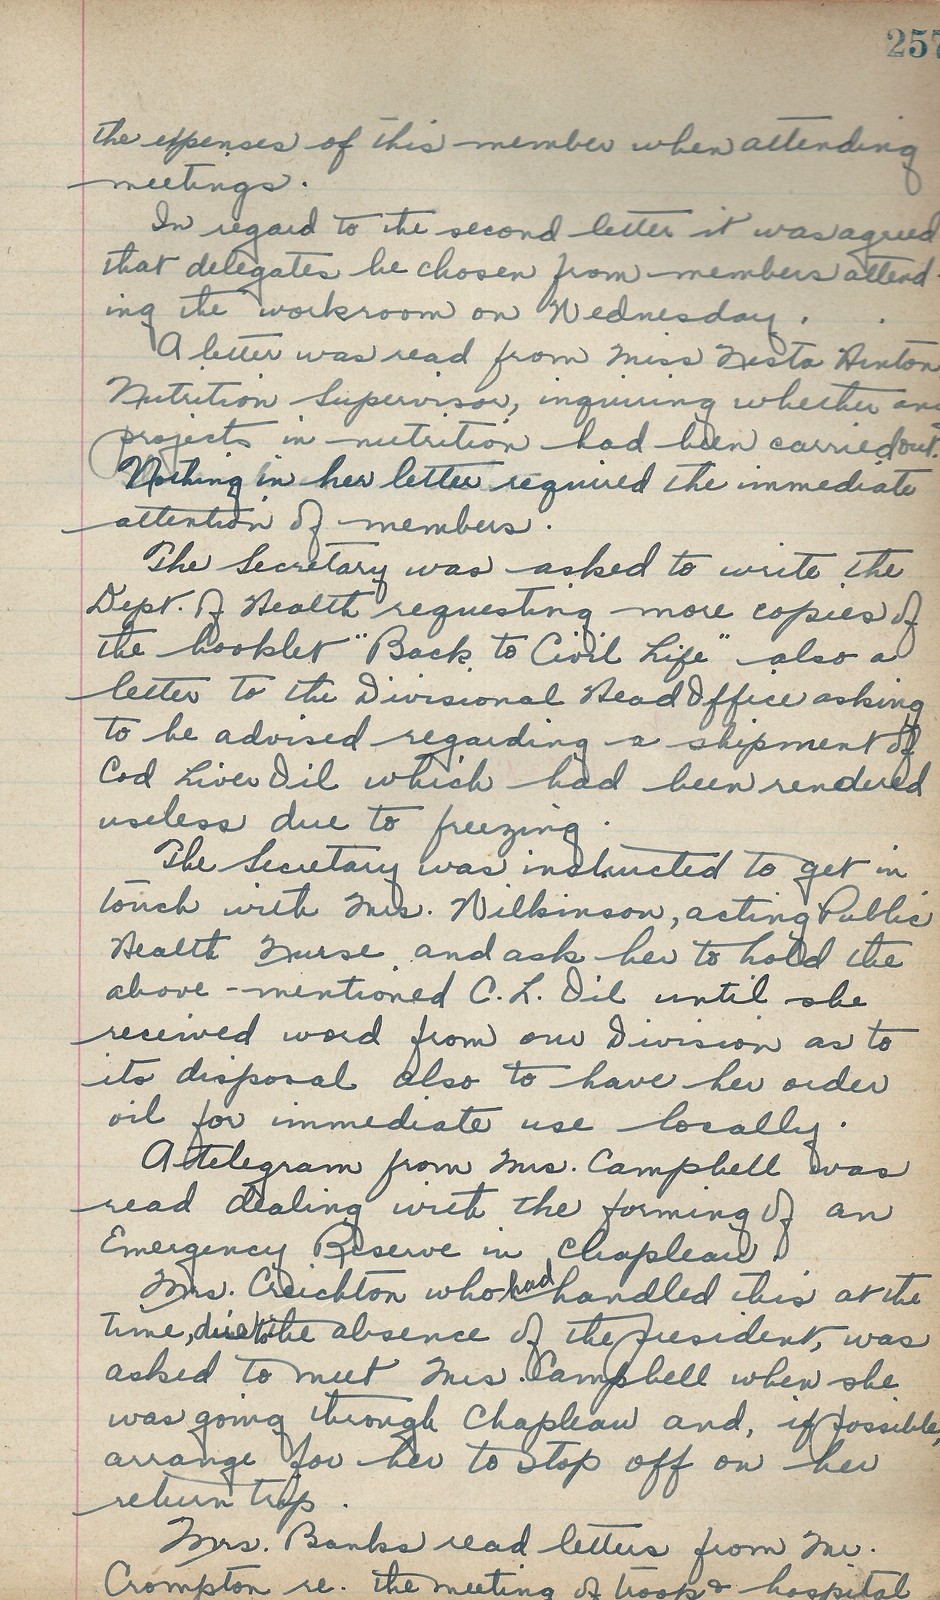 257
the expenses of this member when attending
meetings.
In regard to the second letter it was agreed
that delegates be chosen from members attend-
ing the workroom on Wednesday.
A letter was read from Miss Nesta Hinton
Nutrition Supervisor, inquiring whether any
projects in nutrition had been carried out.
Nothing in her letter required the immediate
attention of members.
The Secretary was asked to write the
Dept. of Health requesting more copies of
the booklet "Back to Civil Life" also a
letter to the Divisional Head Office asking
to be advised regarding a shipment of
Cod Liver Oil which had been rendered
useless due to freezing.
The Secretary was instructed to get in
touch with Mrs. Wilkinson, acting Public
Health Nurse and ask her to hold the
above-mentioned C.L. Oil until she
received word from our Division as to
its disposal also to have her order
oil for immediate use locally.
A telegram from Mrs. Campbell was
read dealing with the forming of an
Emergency Reserve in Chapleau.
Mrs. Creichton who had handled this at the
time, due to the absence of the president, was
asked to meet Mrs. Campbell when she
was going through Chapleau and, if possible,
arrange for her to stop off on her
return trip.
Mrs. Banks read letters from Mr.
Crompton re. the meeting of troop & hospital